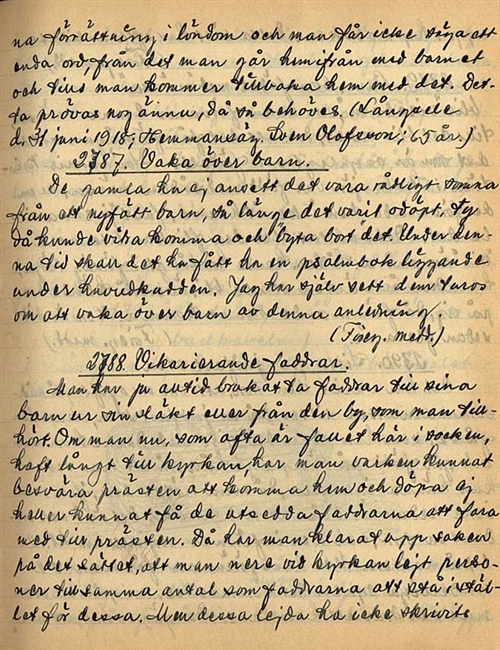 na förrättning i löndom och man får icke säga ett
enda ord, från det man går hemifrån med barnet
och tills man kommer tillbaka hem med det. Det-
ta prövas nog ännu, då så behöves. (Långsele
d. 21 juni 1918; Hemmansäg. Sven Olofsson; 65 år.)
2787. Vaka över barn.
De gamla ha ej ansett det vara rådligt somna
från ett nyfött barn, så länge det varit odöpt, ty
då kunde vitra komma och byta bort det. Under den-
na tid skall det ha fått ha en psalmbok liggande
under huvudkudden. Jag har själv sett dem turas
om att vaka över barn av denna anledning.
(Föreg. medd.)
2788. Vikarierande faddrar.
Man har ju alltid brukat ta faddrar till sina
barn ur sin släkt eller från den by, som man till-
hört. Om man nu, som ofta är fallet här i socken,
haft långt till kyrkan, har man varken kunnat
besvära prästen att komma hem och döpa ej
heller kunnat få de utsedda faddrarna att fara
med till prästen. Då har man klarat upp saken
på det sättet, att man nere vid kyrkan lejt perso-
ner till samma antal som faddrarna att stå i stäl-
let för dessa. Men dessa lejda ha icke skrivits